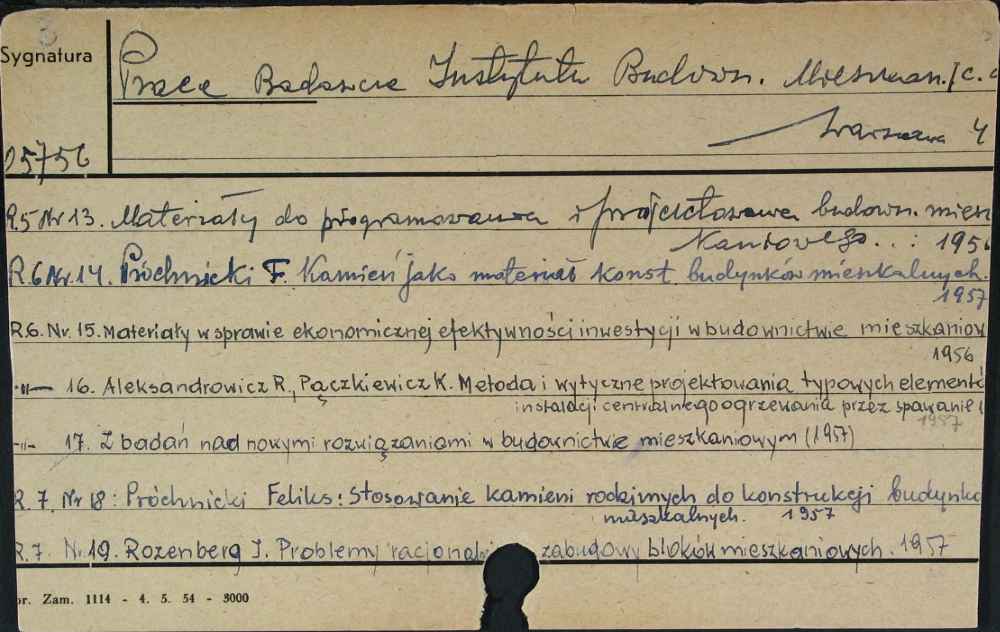 Sygnatura
Prace Badawcze Instytutu Budown. Mieszkan. /c.d
Warszawa 4
05756
R.5 Nr 13. Materiały do programowania i projektowania budown. miesz
kaniowego. . : 1956
R.6 Nr.14. Próchnicki F. Kamień jako materiał konst. budynków mieszkalnych.
1957
R.6. Nr. 15. Materiały w sprawie ekonomicznej efektywności inwestycji w budownictwie mieszkaniow
1956
-"- 16. Aleksandrowicz R, Pączkiewicz K. Metoda i wytyczne projektowania typowych elementó
instalacji centralnego ogrzewania przez spawanie
1957
-"- 17. Z badań nad nowymi rozwiązaniami w budownictwie mieszkaniowym (1957)
R. 7. Nr 18: Próchnicki Feliks: Stosowanie kamieni rodzimych do konstrukcji budynkó
mieszkalnych. 1957
R. 7. Nr. 19. Rozenberg J. Problemy racjonal zabudowy bloków mieszkaniowych. 1957
or. Zam. 1114 - 4. 5. 54 - 3000